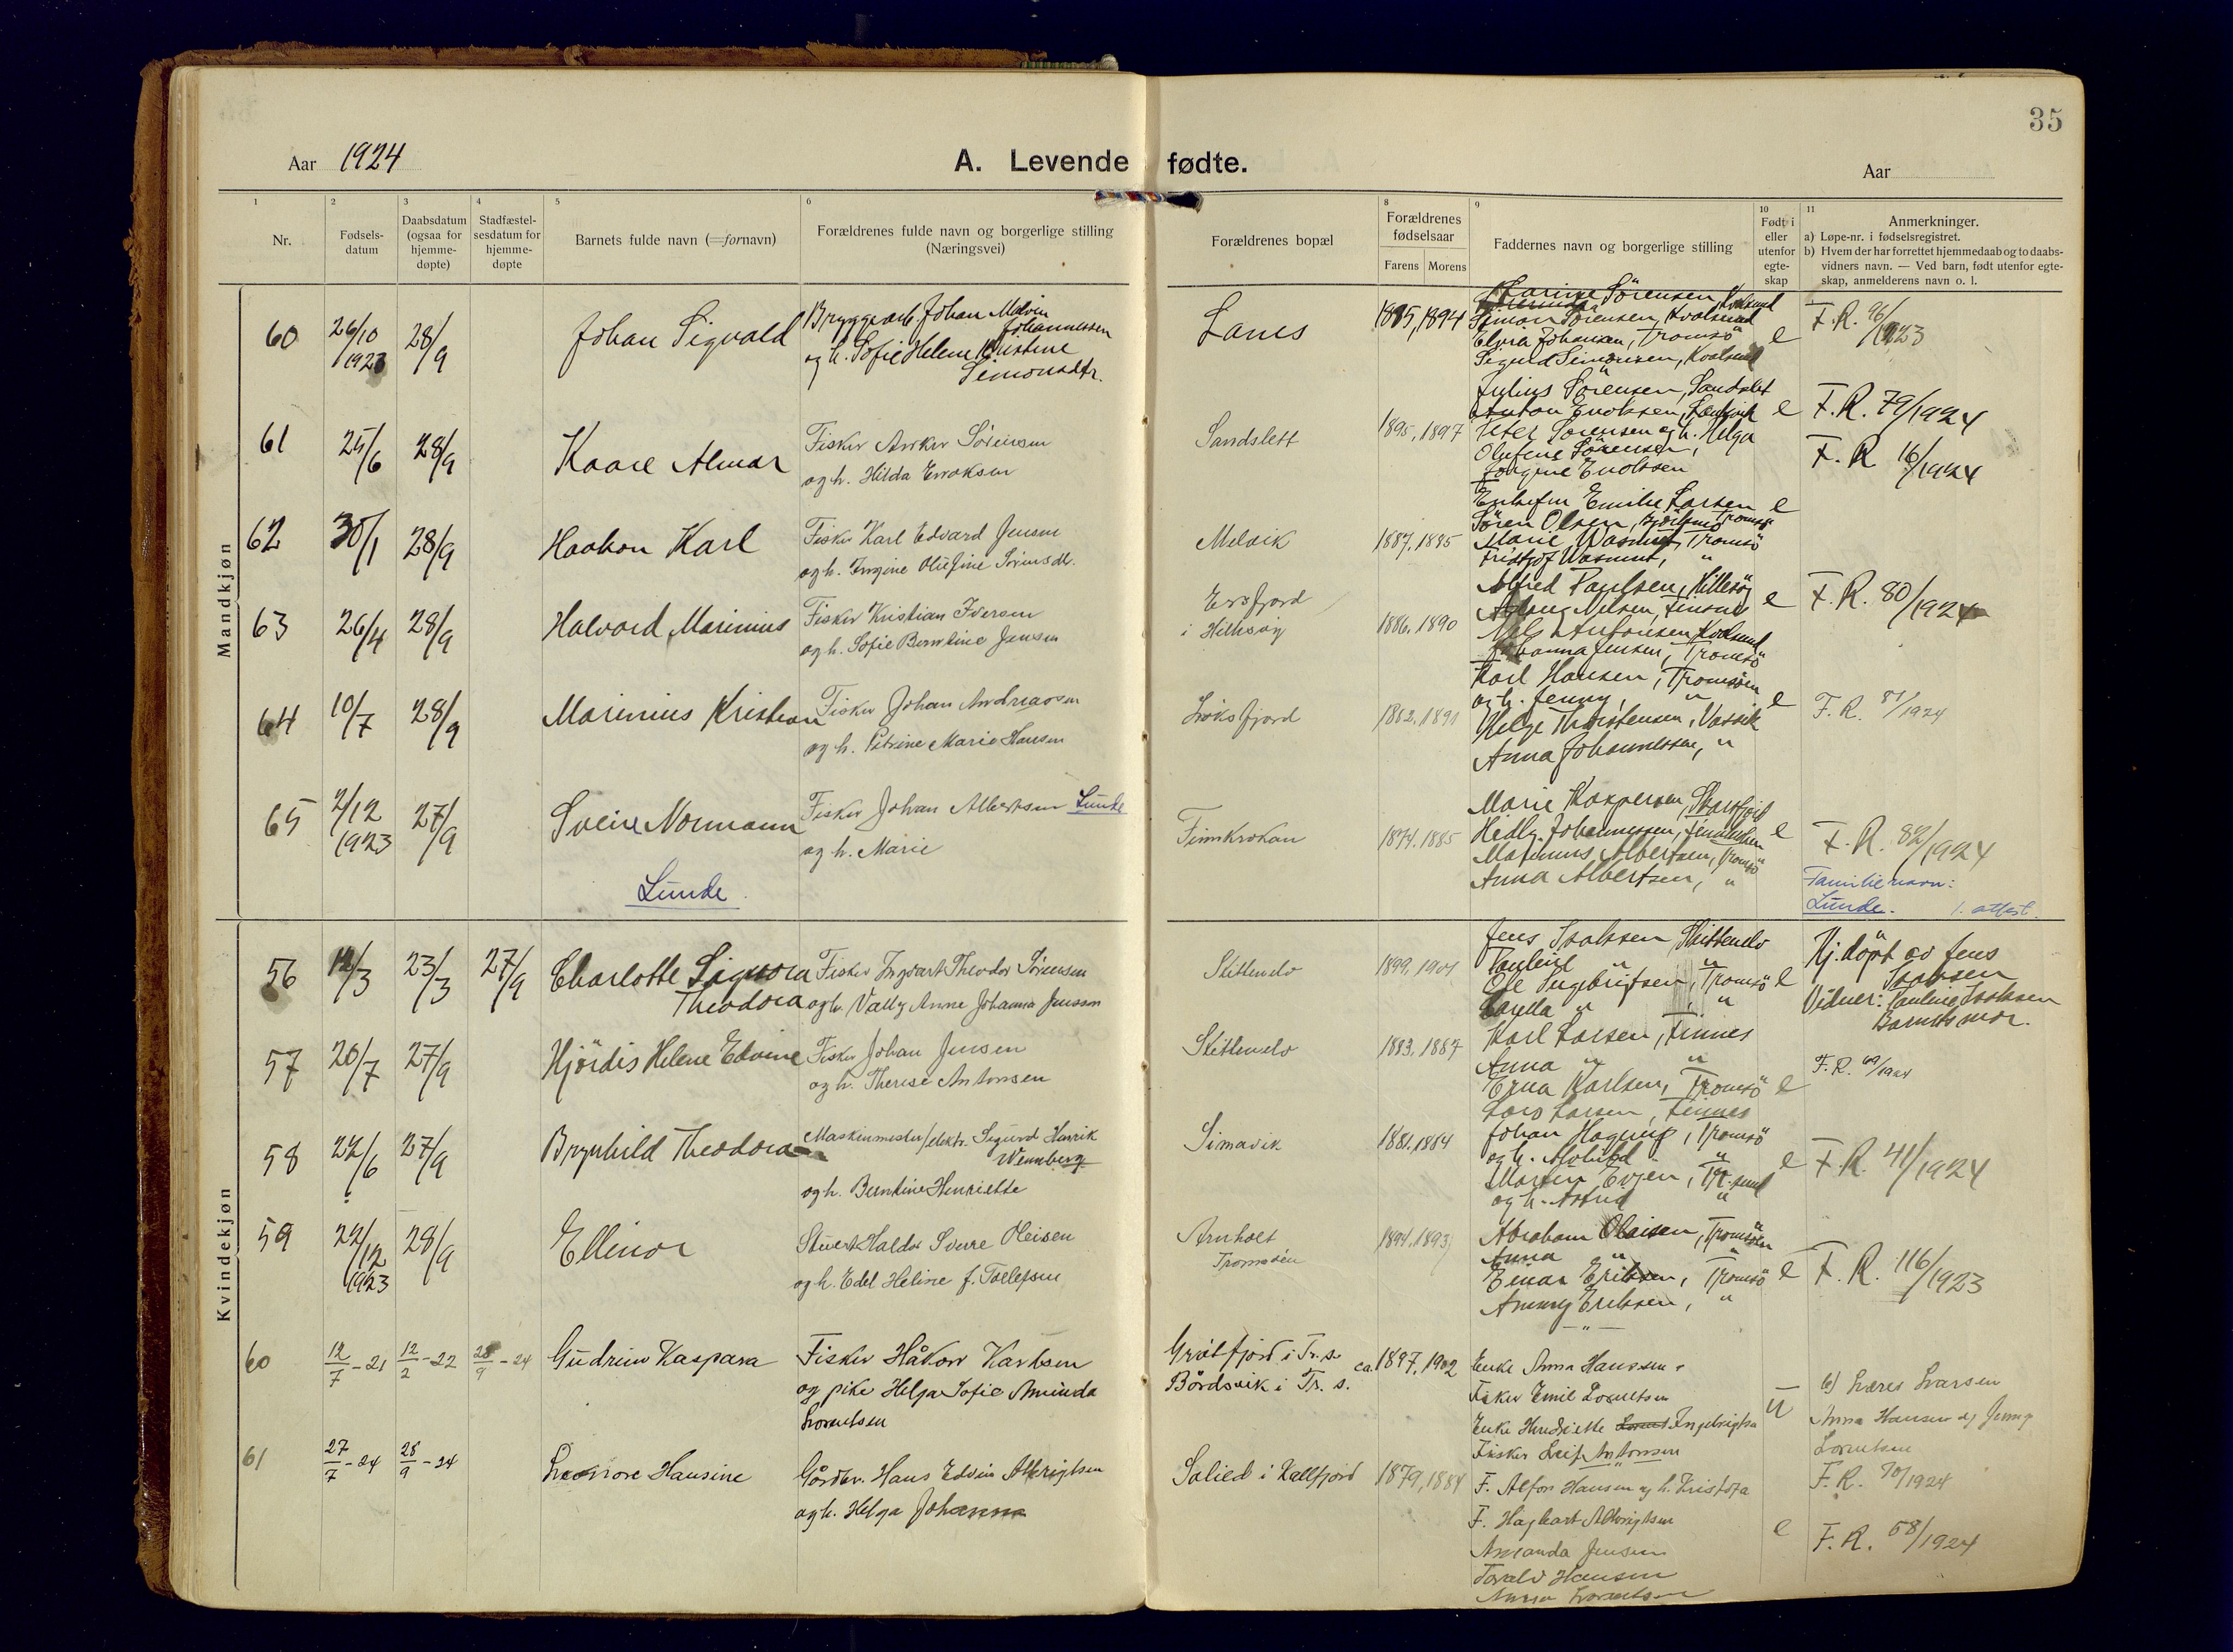 35
Aar 1924
A. Levende fødte.
Aar
1 2 3 4 5 6 8 9 10 11
Nr.
Fødselsdatum
Daabsdatum (ogsaa for hjemmedøpte)
Stadfæstelsesdatum for hjemmedøpte
Barnets fulde navn (=fornavn)
Forældrenes fulde navn og borgerlige stilling (Næringsvei)
Forældrenes bopæl
Forældrenes fødselsaar
Farens Morens
Faddernes navn og borgerlige stilling
Født i eller utenfor egteskap
Anmerkninger.
a) Løpe-nr. i fødselsregistret.
b) Hvem der har forrettet hjemmedaab og to daabsvidners navn. — Ved barn, født utenfor egteskap, anmelderens navn o. l.
Mandkjøn
60 26/10 1923 28/9 Johan Sigvald
Bryggearb. Johan Melvin Johannessen
og h. Sofie Helene Kristine Simonsdtr.
Lanes 1895, 1894
Simon Sörensen, Kvalsund
Elvira Johansen, Tromsö
Sigurd Simonsen, Kvalsund
e F.R. 96/1923
61 25/6 28/9 Kaare Almar
Fisker Anker Sörensen
og h. Hilda Enoksen
Sandslett 1895, 1897
Julius Sörensen, Sandslet
Anton Enoksen,
Peter Sörensen og h. Helga
Olufine Sörensen,
Jörgine Enoksen
e F.R. 79/1924
F.R 16/1924
62 30/1 28/9 Haakon Karl
Fisker Karl Edvard Jensen
og h. Ingine Olufine Sörensdtr.
Melvik 1887, 1895
Enkefru Emilie Larsen
Sören Olsen, Tromsö
Marie Wasmut, Tromsö
Fridtjof Wasmut, "
e
63 26/4 28/9 Halvard Marinius
Fisker Kristian Iversen
og h. Sofie Berntine Jensen
Ersfjord
i Hillesöy 1886, 1890
Alfred Paulsen, Hillesöy
Nils Antonsen, Kvalsund
Johanna Jensen, Tromsö
e F.R. 80/1924
64 10/7 28/9 Marinius Kristian
Fisker Johan Andreassen
og h. Petrine Marie Hansen
Löksfjord 1882, 1891
Karl Hansen, Tromsöen
og h. Jenny, "
Helge Thorstensen, Vasvik
Anna Johannessen, "
e F.R. 81/1924
65 2/12 1923 27/9 Svein Normann
Lunde.
Fisker Johan Albertsen Lunde
og h. Marie
Finnkroken 1874, 1885
Marie Kaspersen,
Hedly Johannessen,
Matinus Albertsen, Tromsö
Anna Albertsen, "
e F.R. 82/1924
Familienavn:
Lunde. 1. attest.
Kvindekjøn
56 12/3 23/3 27/9 Charlotte Signora Theodora
Fisker Ingvart Theodor Sörensen
og h. Vally Anne Johanna Jensen
Skittenelv 1899, 1901
Jens Isaksen Skittenelv
Pauline " "
Ole Ingebrigtsen, Tromsö
" "
e
Hj. döpt av Jens Isaksen
Vidner: Pauline Isaksen
Barnets mor.
57 20/7 27/9 Hjördis Helene Edvine
Fisker Johan Jensen
og h. Therese Antonsen
Skittenelv 1883, 1887
Karl Larsen, Finnes
Anna " "
Erna Karlsen, Tromsö
Lars Larsen, Finnes
e F.R. 69/1924
58 22/6 27/9 Brynhild Theodora
Maskinmester/elektr. Sigurd Henrik Wennberg
og h. Berntine Henriette
Simavik 1881, 1884
Johan Hagerup, Tromsö
og h. "
Martin Evjen, Tr. sund
og h. Astrid "
e F.R. 41/1924
59 22/12 1923 28/9 Ellinor
Stuert Haldor Sverre Oleisen
og h. Edel Heline f. Tollefsen
Arnholt
Tromsöen 1894, 1893
Abraham Olaisen, Tromsöen
Anna " "
Einar Eriksen, Tromsö
Anny Eriksen, "
e F.R. 116/1923
60 12/7 - 21 12/2 - 22 28/9 - 24 Gudrun Kaspara
Fisker Håkon Karlsen
og pike Helga Sofie Aminda Lorentsen
Grötfjord i Tr.s.
Bårdsvik i Tr. s. ca. 1897, 1902
Enke Anna Hanssen
Fisker Emil Lorentsen
Enke Hendriette Ingebrigtsen
Fisker Leif Antonsen
U
b) Lars Larsen
Anna Hansen og Jenny Lorentsen
F.R. 70/1924
61 27/7 - 24 28/9 - 24 Leonore Hansine
Gårdbr. Hans Edvin Albrigtsen
og h. Helga Johanna
Solied i Kallfjord 1879, 1884
F. Alfon Hansen og h. Kristofa
F. Hagbart Albrigtsen
Amanda Jensen
Torald Hansen
Anna Lorentsen
e F.R. 58/1924